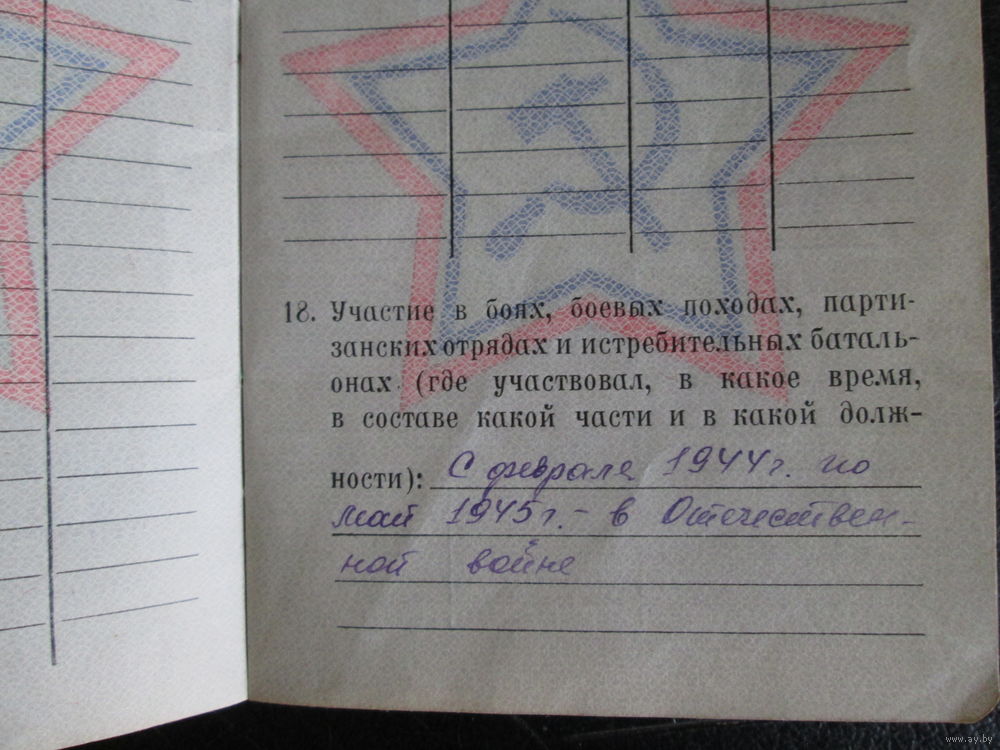 18. Участие в боях, боевых походах, парти-
занских отрядах и истребительных баталь-
онах (где участвовал, в какое время,
в составе какой части и в какой долж-
ности): С февраля 1944г. по
май 1945г. - в Отечествен-
ной войне
www.ay.by